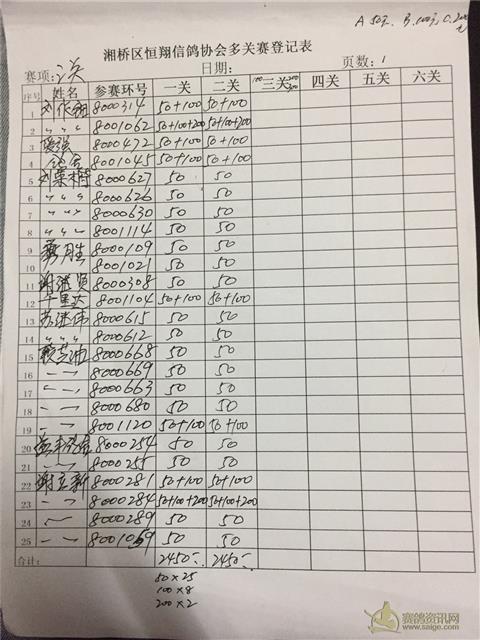 A 50元. B.100元. C.200元
湘桥区恒翔信鸽协会多关赛登记表
赛项: 三关 日期: 页数: 1
序号 姓名 参赛环号 一关 二关 三关 四关 五关 六关
1 8000314 50+100 50+100
2 〃 〃 〃 8001062 50+100+200 50+100+200
3 8000472 50+100 50+100
4 8001045 50+100 50+100
5 8000627 50 50
6 〃 〃 〃 8000626 50 50
7 〃 〃 〃 8000630 50 50
8 〃 〃 〃 8001114 50 50
9 8000109 50 50
10 8001021 50 50
11 8000308 50 50
12 千里达 8001104 50+100 50+100
13 苏继伟 8000615 50 50
14 〃 〃 〃 8000612 50 50
15 8000668 50 50
16 8000669 50 50
17 8000663 50 50
18 8000680 50 50
19 8001120 50+100 50+100
20 8000254 50 50
21 8000255 50 50
22 谢立新 8000281 50+100 50+100
23 8000284 50+100+200 50+100+200
24 8000289 50 50
25 8001059 50 50
合计: 2450 2450
50×25
100×8
200×2
赛鸽资讯网
www.saige.com